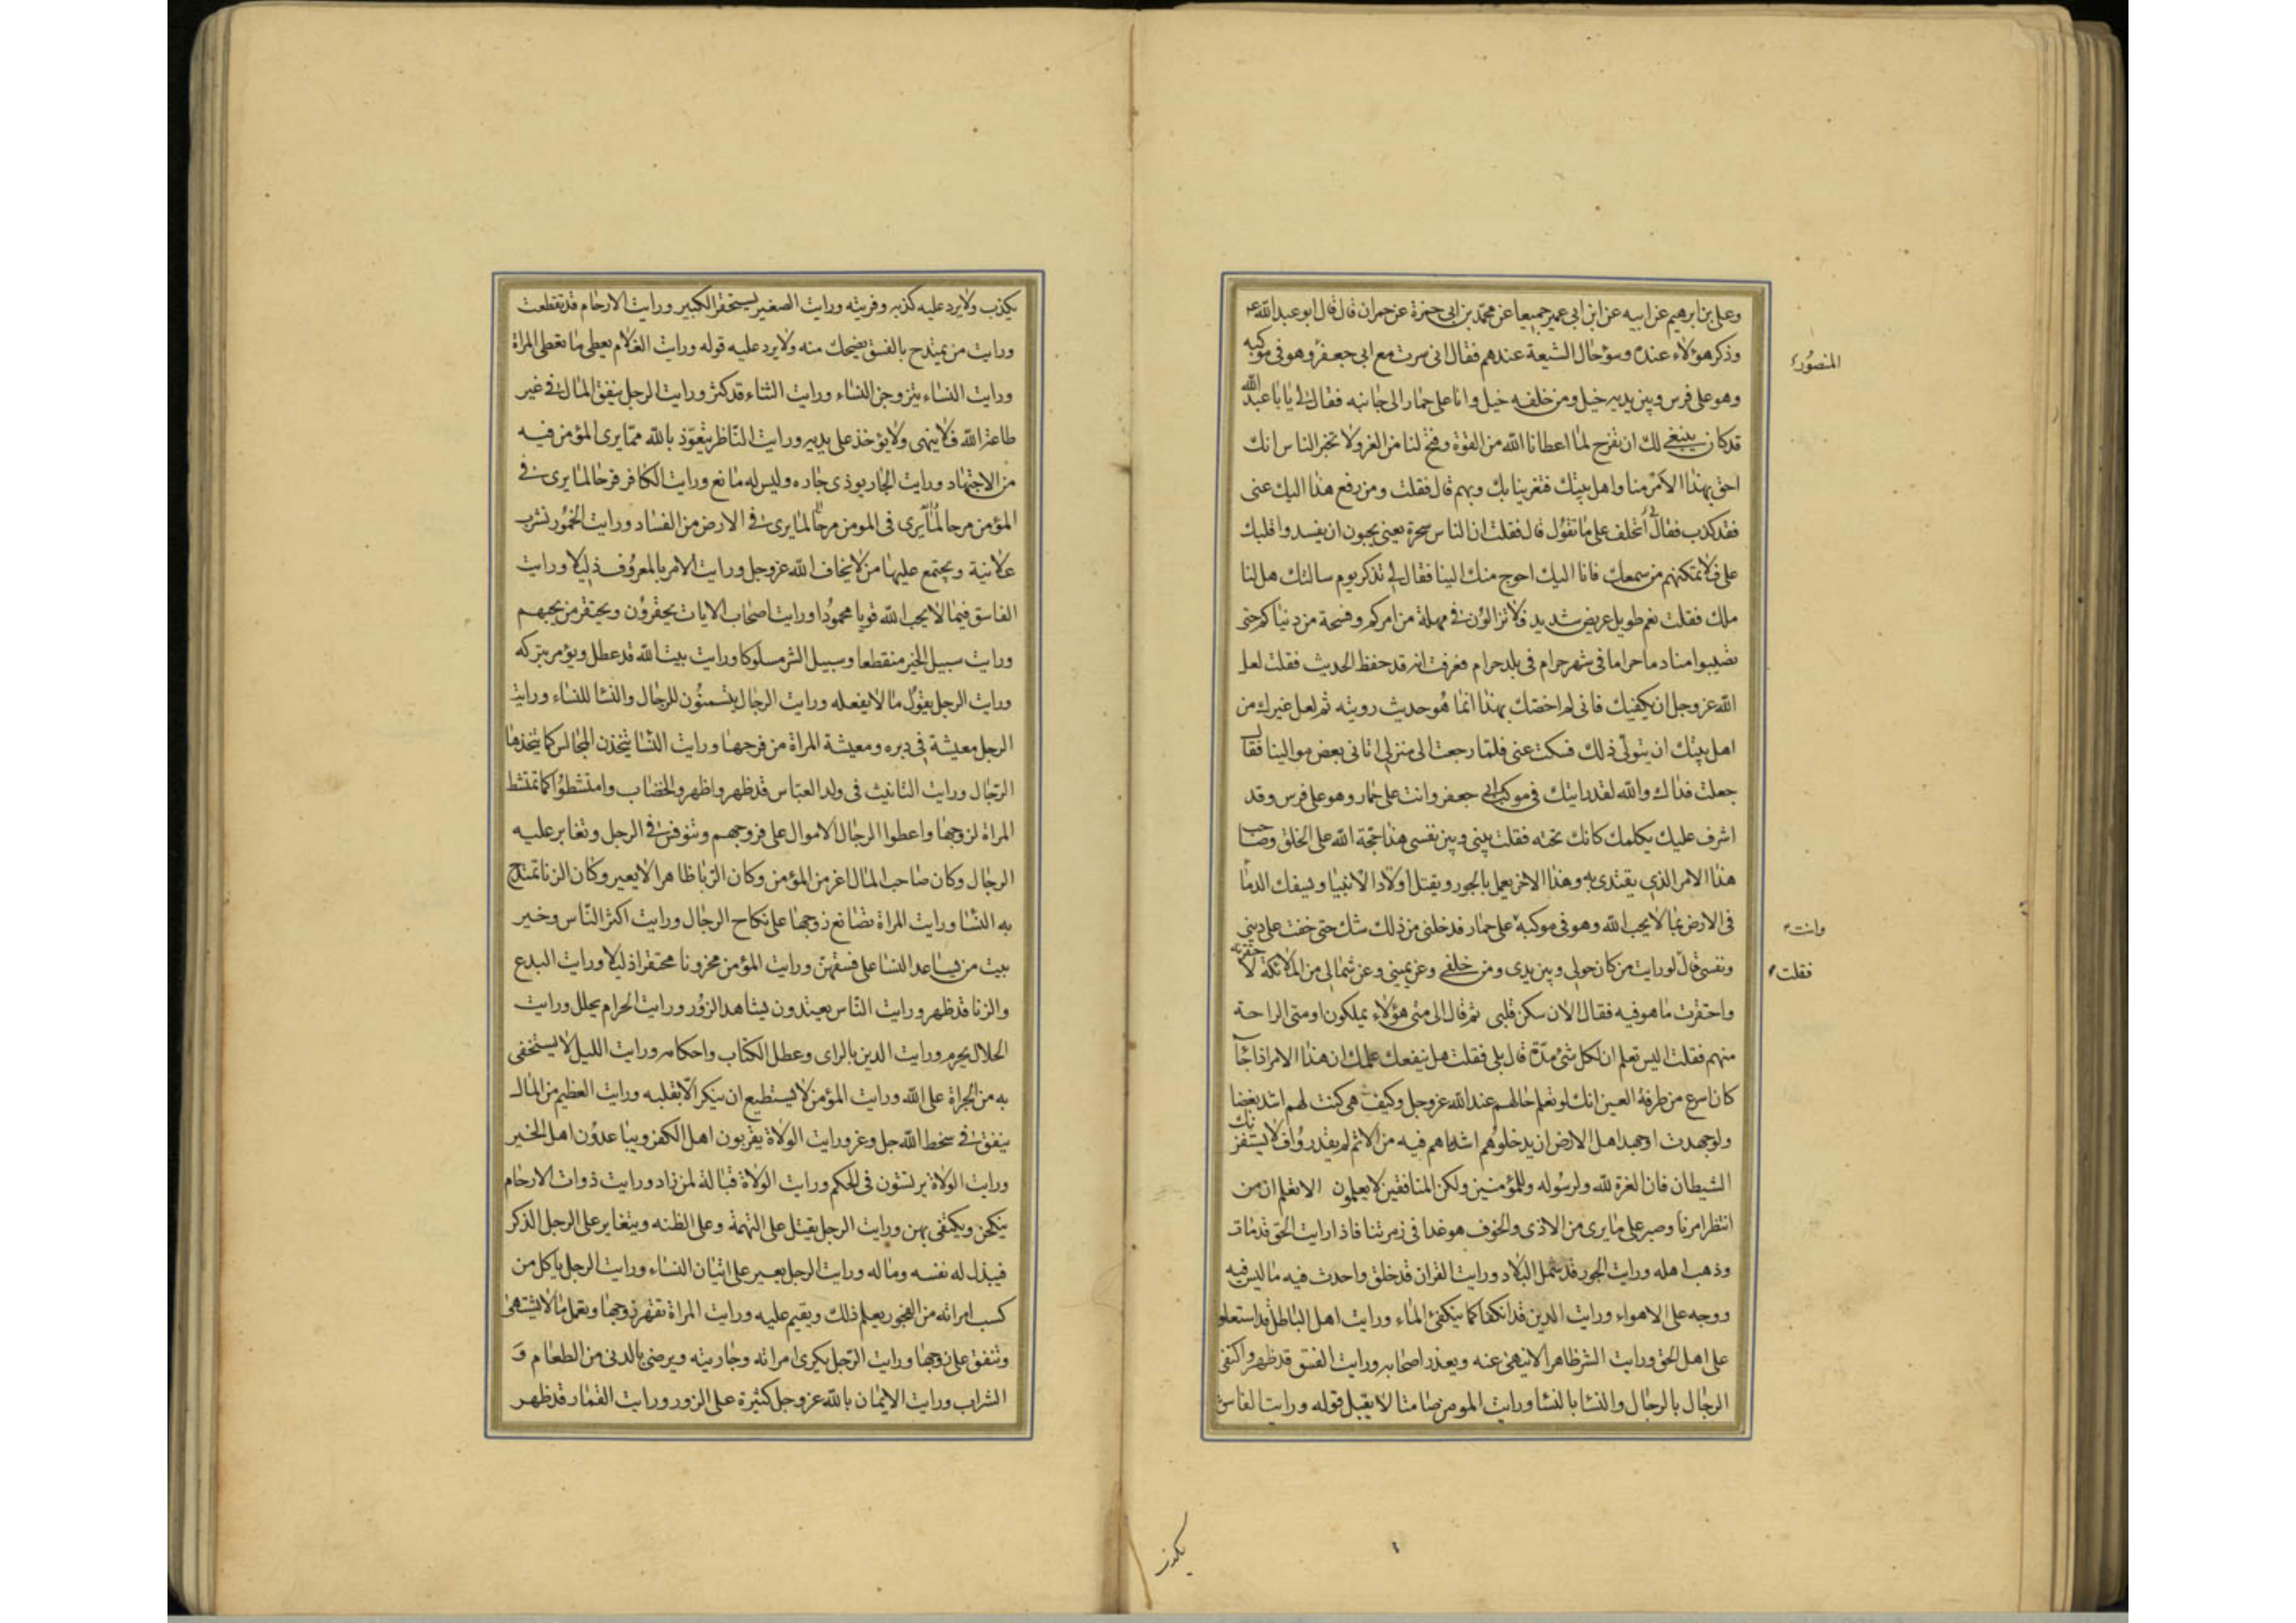 وعلى بن ابرهيم عن ابيه عن ابن ابى عمير جميعا عن محمد بن ابى حمزة عن حمران قال قال ابو عبد الله ع
وذكر هؤلاء عنده وسؤحال الشيعة عندهم فقال انى سرت مع ابى جعفر وهو فى موكبه
المنصور
وهو على فرس وبين يديه خيل ومن خلفه خيل وانا على حمار الى جانبه فقال لى يا با عبد الله
قد كان ينبغى لك ان تفرح لما اعطانا الله من القوة وفتح لنا من العز ولا تخبر الناس انك
احق بهذا الامر منا واهل بيتك فتغرينا بك وبهم قال فقلت ومن رفع هذا اليك عنى
فقد كذب فقال لى أتحلف على ما تقول قال فقلت ان الناس سحرة يعنى يحبون ان يفسدوا قلبك
على فلا تمكنهم من سمعك فانا اليك احوج منك الينا فقال لى تذكر يوم سالتك هل لنا
ملك فقلت نعم طويل عريض شديد فلا تزالون فى مهلة من امركم وفسحة من دنياكم حتى
تصيبوا منا دما حراما فى شهر حرام فى بلد حرام فعرفت انه قد حفظ الحديث فقلت لعل
الله عز وجل ان يكفيك فانى لم اخصك بهذا انما هو حديث رويته ثم لعل غيرك من
اهل بيتك ان يتولى ذلك فسكت عنى فلما رجعت الى منزلى اتانى بعض موالينا فقال
جعلت فداك والله لقد رايتك فى موكب ابى جعفر وانت على حمار وهو على فرس وقد
اشرف عليك يكلمك كانك تحته فقلت بينى وبين نفسى هذا حجة الله على الخلق وصاحب
هذا الامر الذى يقتدى به وهذا الاخر يعمل بالجور ويقتل اولاد الانبيا ويسفك الدما
فى الارض بما لا يحب الله وهو فى موكبه على حمار فدخلنى من ذلك شك حتى خفت على دينى
وانت
ونفسى قال لو رايت من كان حولى وبين يدى ومن خلفى وعن يمينى وعن شمالى من الملائكة لاحتقرته
فقلت
واحتقرت ما هو فيه فقال الان سكن قلبى ثم قال الى متى هؤلاء يملكون او متى الراحة
منهم فقلت اليس تعلم ان لكل شئ مدة قال بلى فقلت هل ينفعك علمك ان هذا الامر اذا جآ
كان اسرع من طرفة العين انك لو تعلم حالهم عند الله عز وجل وكيف هى كنت لهم اشد بغضا
ولو جهدت او جهد اهل الارض ان يدخلوهم اشد ما هم فيه من الاثم لم يقدروا فلا يستفزنك
الشيطان فان العزة لله ولرسوله وللمؤمنين ولكن المنافقين لا يعلمون الا تعلم ان من
انتظر امرنا وصبر على ما يرى من الاذى والخوف هو غدا فى زمرتنا فاذا رايت الحق قد مات
وذهب اهله ورايت الجور قد شمل البلاد ورايت القران قد خلق واحدث فيه ما ليس فيه
ووجه على الاهواء ورايت الدين قد انكفا كما ينكفئ الماء ورايت اهل الباطل قد استعلو
على اهل الحق ورايت الشر ظاهرا لا ينهى عنه ويعذر اصحابه ورايت الفسق قد ظهر واكتفى
الرجال بالرجال والنسا بالنسا ورايت المومن صامتا لا يقبل قوله ورايت الفاسق
يكذب
يكذب ولا يرد عليه كذبه وفريته ورايت الصغير يستحقر الكبير ورايت الارحام قد تقطعت
ورايت من يمتدح بالفسق يضحك منه ولا يرد عليه قوله ورايت الغلام يعطى ما تعطى المراة
ورايت النساء يتزوجن النساء ورايت الثناء قد كثر ورايت الرجل ينفق المال فى غير
طاعة الله فلا ينهى ولا يؤخذ على يديه ورايت الناظر يتعوذ بالله مما يرى المؤمن فيه
من الاجتهاد ورايت الجار يوذى جاره وليس له مانع ورايت الكافر فرحا لما يرى فى
المؤمن مرحا لما يرى فى المومن مرحا لما يرى فى الارض من الفساد ورايت الخمور تشرب
علانية ويجتمع عليها من لا يخاف الله عز وجل ورايت الامر بالمعروف ذليلا ورايت
الفاسق فيما لا يحب الله قويا محمودا ورايت اصحاب الايات يحقرون ويحتقر من يحبهم
ورايت سبيل الخير منقطعا وسبيل الشر مسلوكا ورايت بيت الله قد عطل ويؤمر بتركه
ورايت الرجل يقول ما لا يفعله ورايت الرجال يتسمنون للرجال والنسا للنساء ورايت
الرجل معيشة فى دبره ومعيشة المراة من فرجها ورايت النسا يتخذن المجالس كما يتخذها
الرجال ورايت التانيث فى ولد العباس قد ظهر واظهروا الخضاب وامتشطوا كما تمتشط
المراة لزوجها واعطوا الرجال الاموال على فروجهم وتنوفس فى الرجل وتغاير عليه
الرجال وكان صاحب المال اعز من المؤمن وكان الربا ظاهرا لا يعير وكان الزنا تمتدح
به النسا ورايت المراة تصانع زوجها على نكاح الرجال ورايت اكثر الناس وخير
بيت من يساعد النسا على فسقهن ورايت المؤمن محزونا محتقرا ذليلا ورايت البدع
والزنا قد ظهر ورايت الناس يعتدون بشاهد الزور ورايت الحرام يحلل ورايت
الحلال يحرم ورايت الدين بالراى وعطل الكتاب واحكامه ورايت الليل لا يستخفى
به من الجراة على الله ورايت المؤمن لا يستطيع ان ينكر الا بقلبه ورايت العظيم من المال
ينفق فى سخط الله جل وعز ورايت الولاة يقربون اهل الكفر ويباعدون اهل الخير
ورايت الولاة يرتشون فى الحكم ورايت الولاة قبالة لمن زاد ورايت ذوات الارحام
ينكحن ويكتفى بهن ورايت الرجل يقتل على التهمة وعلى الظنه ويتغاير على الرجل الذكر
فيبذل له نفسه وماله ورايت الرجل يعير على اتيان النساء ورايت الرجل ياكل من
كسب امراته من الفجور يعلم ذلك ويقيم عليه ورايت المراة تقهر زوجها وتعمل ما لا يشتهى
وتنفق على زوجها ورايت الرجل يكرى امراته وجاريته ويرضى بالدنى من الطعام و
الشراب ورايت الايمان بالله عز وجل كثيرة على الزور ورايت القمار قد ظهر